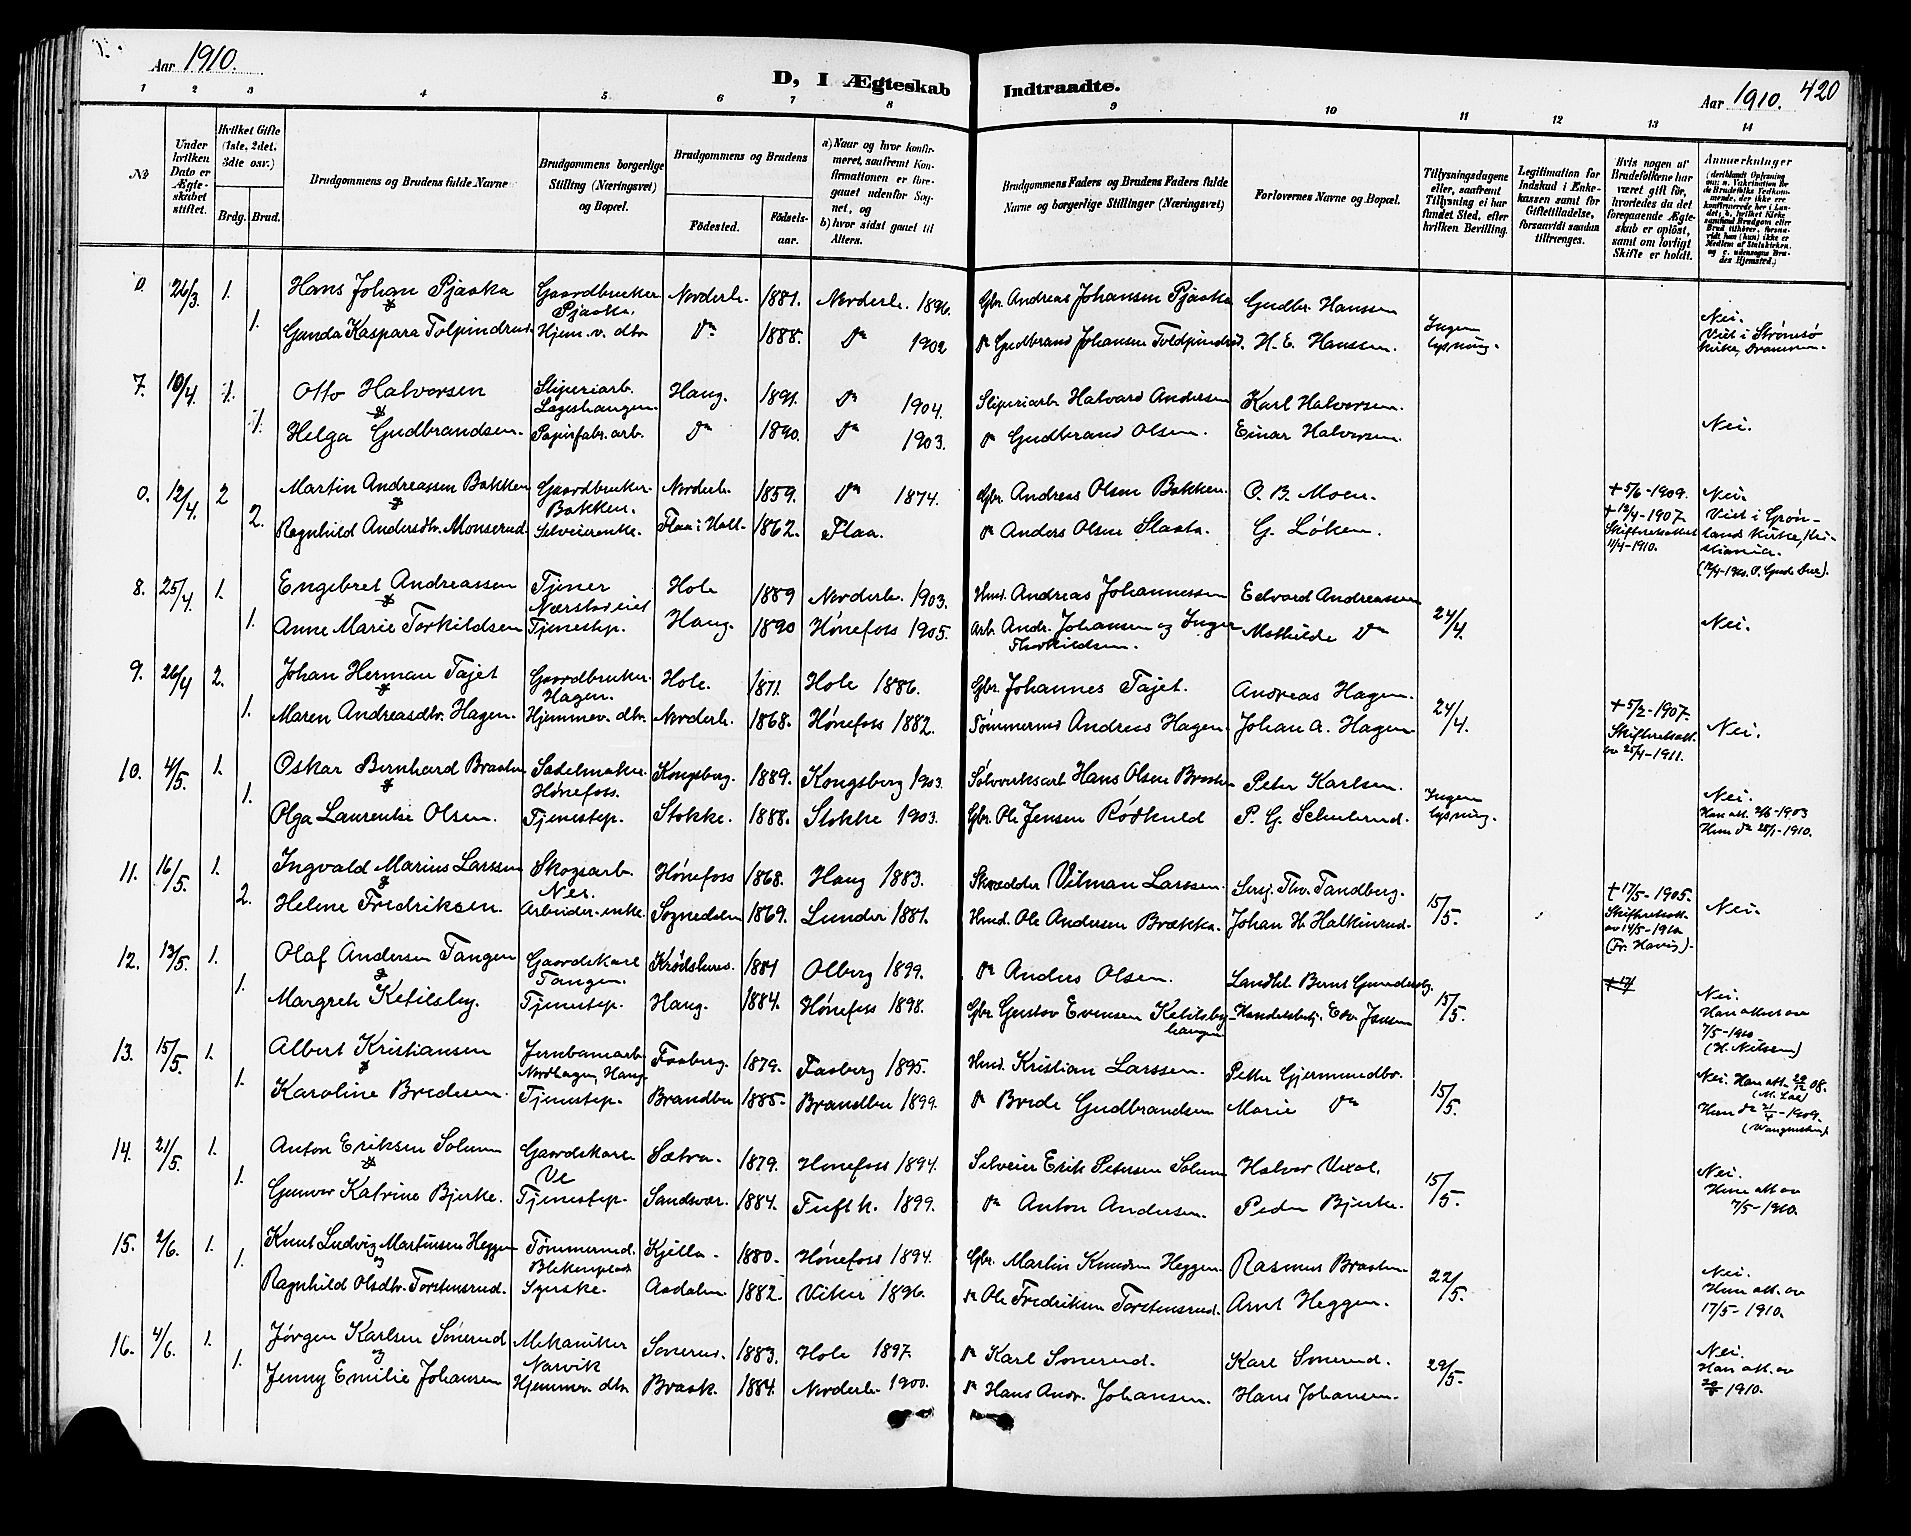 Aar 1910.
D, I Ægteskab Indtraadte.
Aar 1910. 420
1 2 3 4 5. 6 7 8 9 10 11 12 13 14
No
Under hvilken Dato er Ægteskabet stiftet.
Hvilket Gifte (1ste, 2det, 3die osv.)
Brdg. Brud.
Brudgommens og Brudens fulde Navne
Brudgommens borgerlige Stilling (Næringsvei) og Bopæl.
Brudgommens og Brudens
Fødested. Fødselsaar.
a) Naar og hvor konfirmeret, saafremt Konfirmationen er foregaaet udenfor Sognet, og b) hvor sidst gaaet til Alters.
Brudgommens Faders og Brudens Faders fulde Navne og borgerlige Stillinger (Næringsvei)
Forlovernes Navne og Bopæl.
Tillysningsdagene eller, saafremt Tillysning ei har fundet Sted, efter hvilken Bevilling.
Legitimation for Indskud i Ænkekassen samt for Giftetilladelse, forsaavidt saadan tiltrænges.
Hvis nogen af Brudefolkene har været gift før, hvorledes da det foregaaende Ægteskab er opløst, samt om lovligt Skifte er holdt.
Anmærkninger
0. 26/3 1. Hans Johan Pjaaka Gaardbruker Pjaaka. Norderh. 1881. Norderh. 1896. Gbr. Andreas Johansen Pjaaka Gudbr. Hanssen
& 1. Gunda Kaspara Tolpinrud Hjem.v. dtr. Do 1888. Do 1902 Do Gudbrand Johansen Toldpindrud. H. E. Hanssen. Ingen lysning. Nei. Viet i Strømsø kirke, Drammen.
7. 10/4. 1. Otto Halvorsen Sliperiarb. Hang. 1891. Do 1904. Sliperiarb. Halvard Andersen Karl Halvorsen.
& 1. Helga Gudbrandsen. Papirfabr. arb. Do 1890. Do 1903. Do Gudbrand Olsen. Einar Halvorsen. Nei.
0. 12/4. 2 Martin Andreassen Bakken Gaardbruker Bakken. Norderh. 1859. Do 1874. Gbr. Andreas Olsen Bakken. O. B. Moen. + 5/6-1909. Nei.
& 2. Ragnhild Andersdtr. Monserud. Selveierenke. Flaa i Hall. 1862. Flaa. Do Anders Olsen Slaata. G. Løken. + 12/4-1907. Skifteretsattest 11/4-1910. Viet i Grønlands kirke, Kristiania.
8. 25/4. 1. Engebret Andreassen Tjener Hole 1889 Norderh. 1903. Hmd. Andreas Johannessen Edvard Andreassen
& 1. Anne Marie Torkildsen Tjenestep. Haug. 1890 Hønefoss 1905. Arb. Andr. Johansen og Inger Thorkildsen. Mathilde Do 24/4. Nei.
9. 26/4 2. Johan Herman Tajet Gaardbruker. Hagen. Hole. 1871. Hole 1886. Gbr. Johannes Tajet. Andreas Hagen.
& 1. Maren Andreasdtr. Hagen. Hjemmev. dtr. Norderh. 1868. Hønefoss 1882. Tømmermd. Andreas Hagen. Johan A. Hagen 24/4. + 5/2-1907. Skifteretsatt. av 25/4-1911. Nei.
10. 4/5. 1. Oskar Bernhard Braaten Sadelmaker Hønefoss. Kongsberg. 1889. Kongsberg 1903. Sølvverksarb. Hans Olsen Braaten Peter Karlsen.
& 1. Olga Laurentse Olsen. Tjenestep. Stokke. 1888. Stokke 1903. Gbr. Ole Jensen Rødkuld P. G. Schulerud. Ingen lysning. Nei. Han att. 2/6-1903 Hun Do 28/1-1910.
11. 16/5. 1. Ingvald Marius Larssen Skogsarb. Hønefoss 1868. Haug 1883. Skrædder Vilman Larssen. Serj. Thv. Tandberg.
& 2. Helene Fredriksen. Arbeider-enke. Sognedalen 1869. Lunder 1881. Hmd. Ole Andersen Brække. Johan H. Halkinrud. 15/5. + 17/5-1905. Skifteretsatt. av 14/5-1910 (Fr. Havig). Nei.
12. 13/5. 1. Olaf Andersen Tangen Gaardskarl Tangen. Krødsheres. 1881 Olberg 1899. Do Anders Olsen. Landhl. Bernt Gundersby.
& 1. Margrete Ketilsby. Tjenestep. Haug. 1884. Hønefoss 1898. Gbr. Gustav Evensen Ketilsbyhaugen Handelsbetj. Edv. Jensen 15/5. Nei. Han attest av 7/5-1910 (H. Nilsen)
13. 15/5. 1. Albert Kristiansen Jernbanearb. Nordhagen, Haug. Faaberg. 1879. Faaberg 1895. Hmd. Kristian Larssen. Petter Gjermundbo.
& 1. Karoline Bredesen. Tjenestep. Brandbu 1885. Brandbu 1899. Do Brede Gudbrandsen Marie Do 15/5. Nei. Han att. 29/12 08. Hun Do 21/4-1909.
14. 21/5. 1. Anton Eriksen Solum Gaardskarl Ve Sætra. 1879. Hønefoss 1894. Selveier Erik Petersen Solum Halvor Vexal.
& 1. Gunvor Katrine Bjerke. Tjenestep. Sandsvær. 1884. Tuft k. 1899. Do Anton Andersen. Peder Bjerke. 15/5. Nei. Hun att. av 7/5-1910.
15. 2/6. 1. Knut Ludvig Martinsen Heggen Tømmermd. Kjilla. 1880. Hønefoss 1894. Gbr. Martin Knudsen Heggen. Rasmus Braaten
og 1. Ragnhild Olsdtr. Torstensrud. Syerske. Aadalen. 1882. Viker 1896. Do Ole Fredriksen Torstensrud. Arnt Heggen. 22/5. Nei. Hun att. av 17/5-1910.
16. 4/6. 1. Jørgen Karlsen Sonerud Mekaniker Narvik Sonerud. 1883. Hole 1897. Do Karl Sonerud. Karl Sonerud.
og 1. Jenny Emilie Johansen Hjemmev. dtr. Braak. 1884. Norderh. 1900. Do Hans Andr. Johansen. Hans Johansen. 29/5. Nei. Han att. av 20/5-1910.